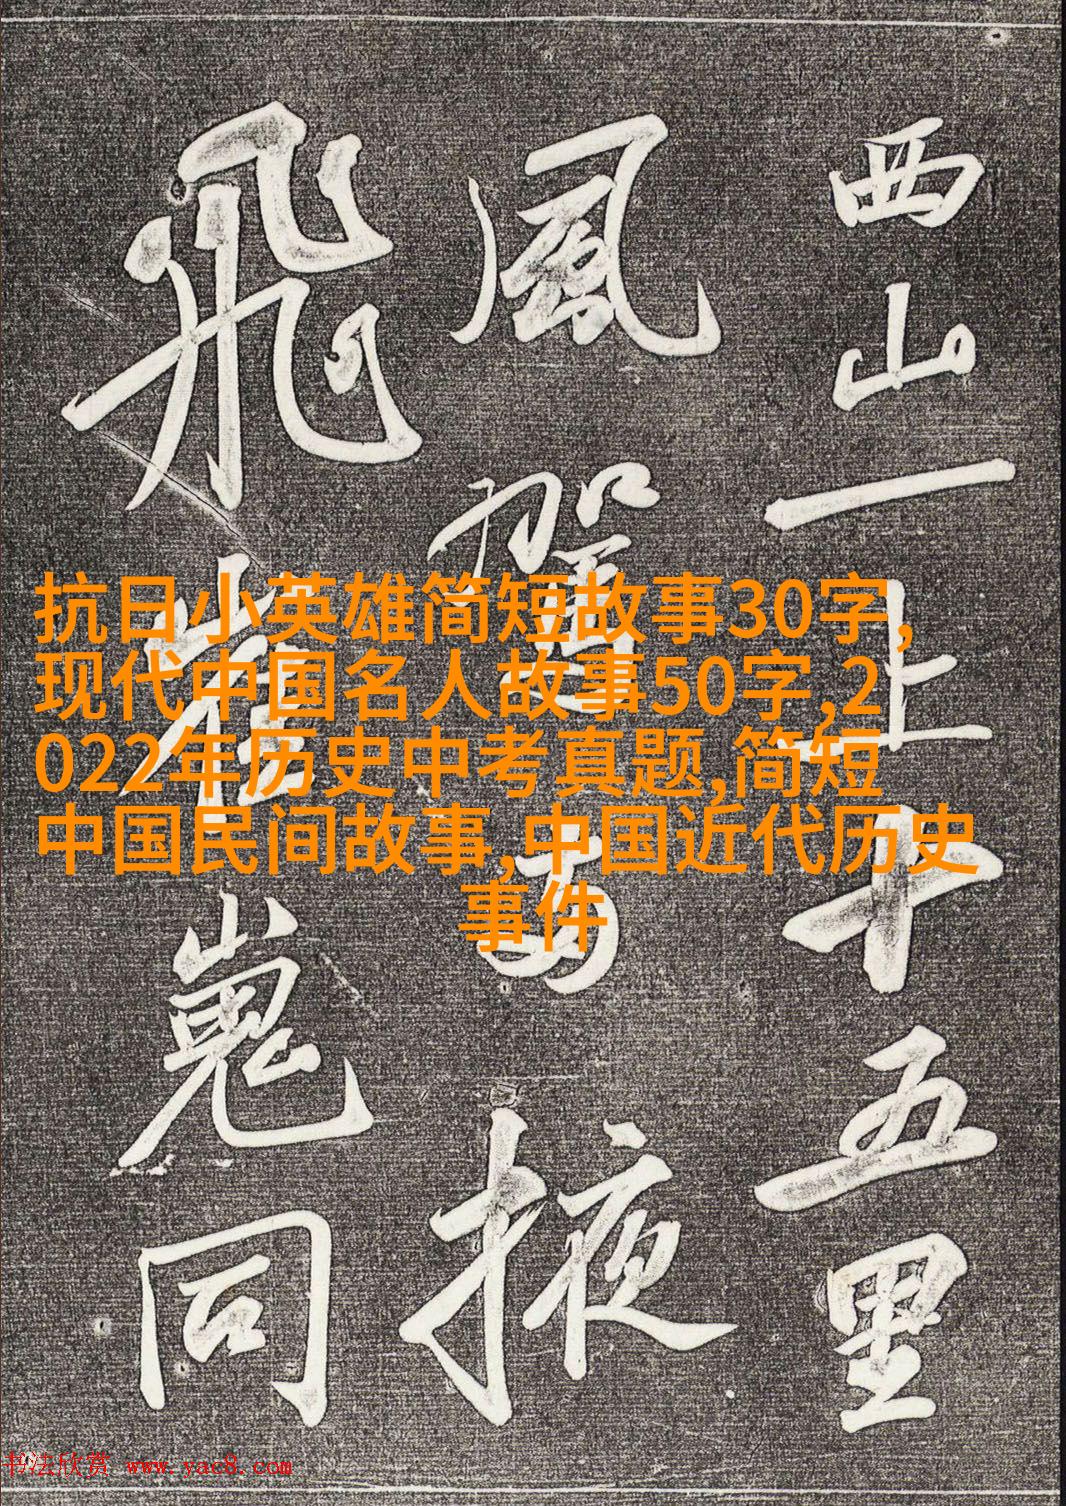 西山一上十五里
風駕兩掖
飛崔嵬同
抗日小英雄简短故事30字,
现代中国名人故事50字,2
022年历史中考真题,简短
中国民间故事,中国近代历史
事件
书法欣赏 www.yac8.com